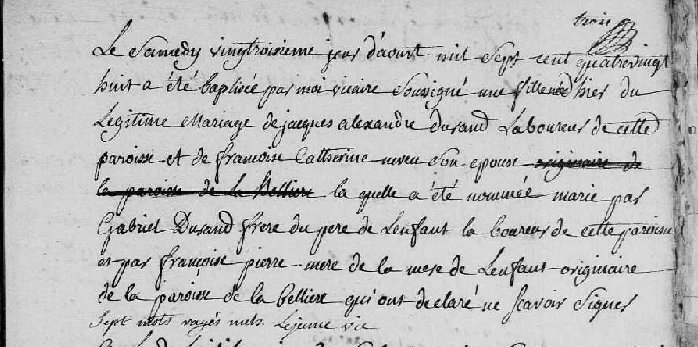 trois
Le Samedy vingtroisieme jour d'aoust mil sept cent quatrevingt
huit a été baptisée par moi vicaire soussigné une fille née d'hier du
Legitime Mariage de jacques alexandre durand Laboureur de cette
paroisse et de francoise Catherine neveu son epouse originaire de
la paroisse de la Belliere la quelle a été nommée marie par
Gabriel Durand frere du pere de Lenfant la boureur de cette paroisse
et par françoise pierre mere de la mere de Lenfant originaire
de la paroisse de la belliere qui ont declaré ne scavoir signer
sept mots rayés nuls. Lejeune vic